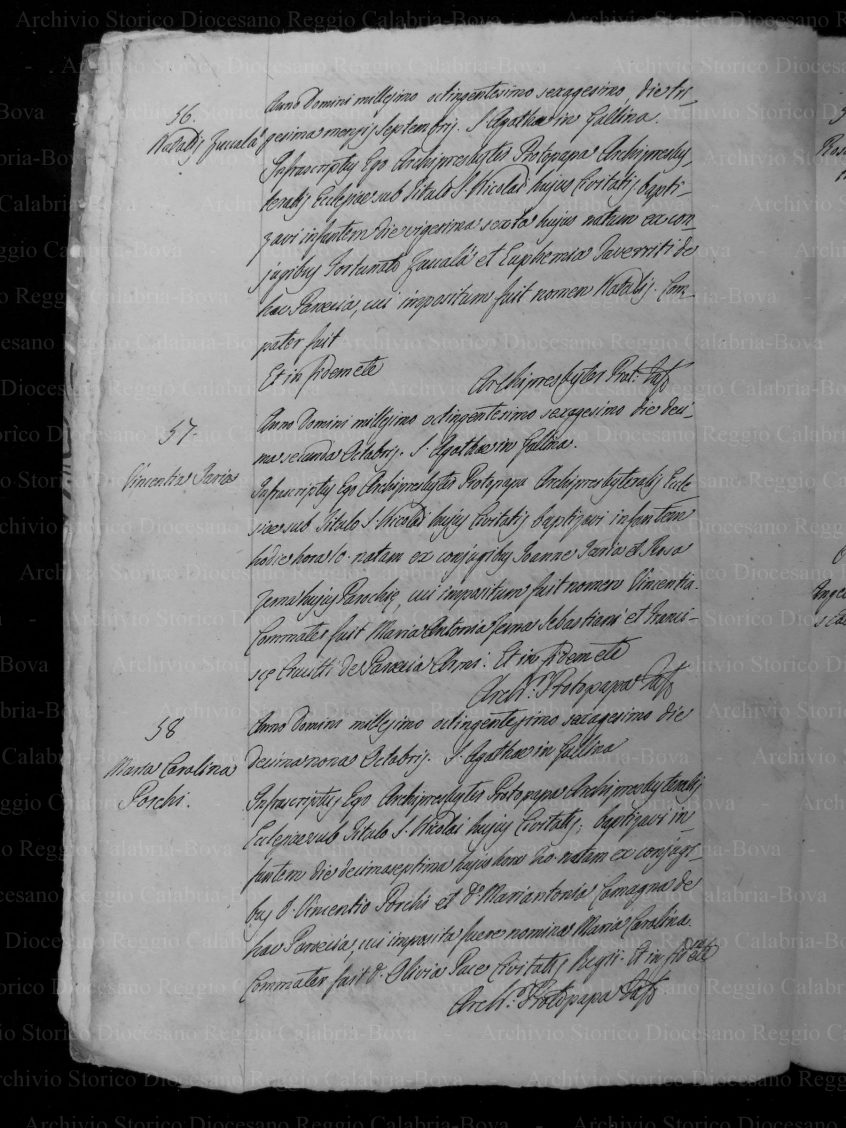 56.
Natalis Zuccalà
Anno Domini millesimo octingentesimo sexagesimo die tri-
gesima mensis Septembris. S. Agathae in Gallina.
Infrascriptus Ego Archipresbyter Protopapa Archipresby-
teralis Ecclesiae sub Titulo S. Nicolai hujus Civitatis, bapti-
zavi infantem die vigesima sexta hujus natum ex con-
jugibus Fortunato Zuccalà et Euphemia Taverriti de
hac Paroecia, cui impositum fuit nomen Natalis. Com-
pater fuit
Et in fidem etc
Archipresbyter Prot.
57.
Vincentia Iaria
Anno Domini millesimo octingentesimo sexagesimo die deci-
ma secunda Octobris. S. Agathae in Gallina.
Infrascriptus Ego Archipresbyter Protopapa Archipresbyteralis Eccle-
siae sub Titulo S. Nicolai hujus Civitatis baptizavi infantem
hodie hora natam ex conjugibus Joanne Iaria et Rosa
Zema hujus Parochię, cui impositum fuit nomen Vincentia.
Commater fuit Maria Antonia Sebastiani et Franci-
scę de Paroecia Et in fidem etc
Arch.r Protopapa
58
Maria Carolina
Porchi.
Anno Domini millesimo octingentesimo sexagesimo die
decima nona Octobris. S. Agathae in Gallina
Infrascriptus Ego Archipresbyter Protopapa Archipresbyteralis
Ecclesiae sub Titulo S. Nicolai hujus Civitatis, baptizavi in-
fantem die decimaseptima hujus hora 20. natam ex conjugi-
bus D. Vincentio Porchi et D.a Mariantonia Comagna de
hac Paroecia, cui imposita fuere nomina Maria Carolina.
Commater fuit D.a Olivia Pace Civitatis Regii. Et in fidem etc
Arch.r Protopapa
Archivio Storico Diocesano Reggio Calabria-Bova